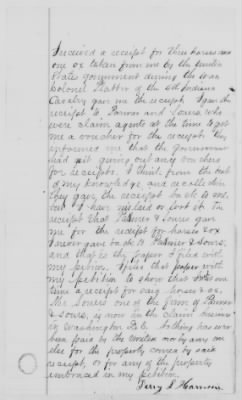 I received a receipt for three horses and
one ox taken from me by the United
States government during the war
Colonel Platter of the 4th Indiana
Cavalry gave me the receipt. I gave the
receipt to Palmer and Sours, who
were claim agents at the time to get
me a voucher for the receipt. They
informed me that the government
had quit giving out any vouchers
for receipts. I think from the best
of my knowledge and recollection
they gave the receipt back to me,
and I have mislaid or lost it. The
receipt that Palmer & Sours gave
me for the receipt for horses & ox
I never gave back to Palmer & Sours
and that is the paper I filed with
my petition. I files this paper with
my petition to show that at one
time a receipt for said horses & ox.
Mr. Sours one of the firm of Palmer
& Sours, is now in the claim business
in Washington D.C. Nothing has ever
been paid by the United nor by any one
else for the property covered by said
receipt, or for any of the property
embraced in my petition.
Terry S. Harrison